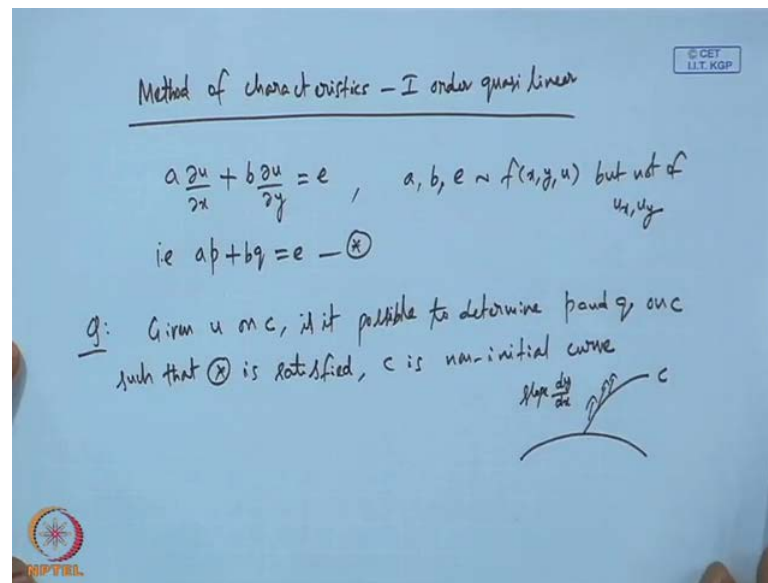 © CET
I.I.T. KGP
Method of characteristics – I order quasi linear
a ∂u/∂x + b ∂u/∂y = e , a, b, e ~ f(x,y,u) but not of
u_x, u_y
i.e ap + bq = e — ⊛
Q: Given u on c, is it possible to determine p and q on c
such that ⊛ is satisfied, c is non-initial curve
slope dy/dx
c
NPTEL